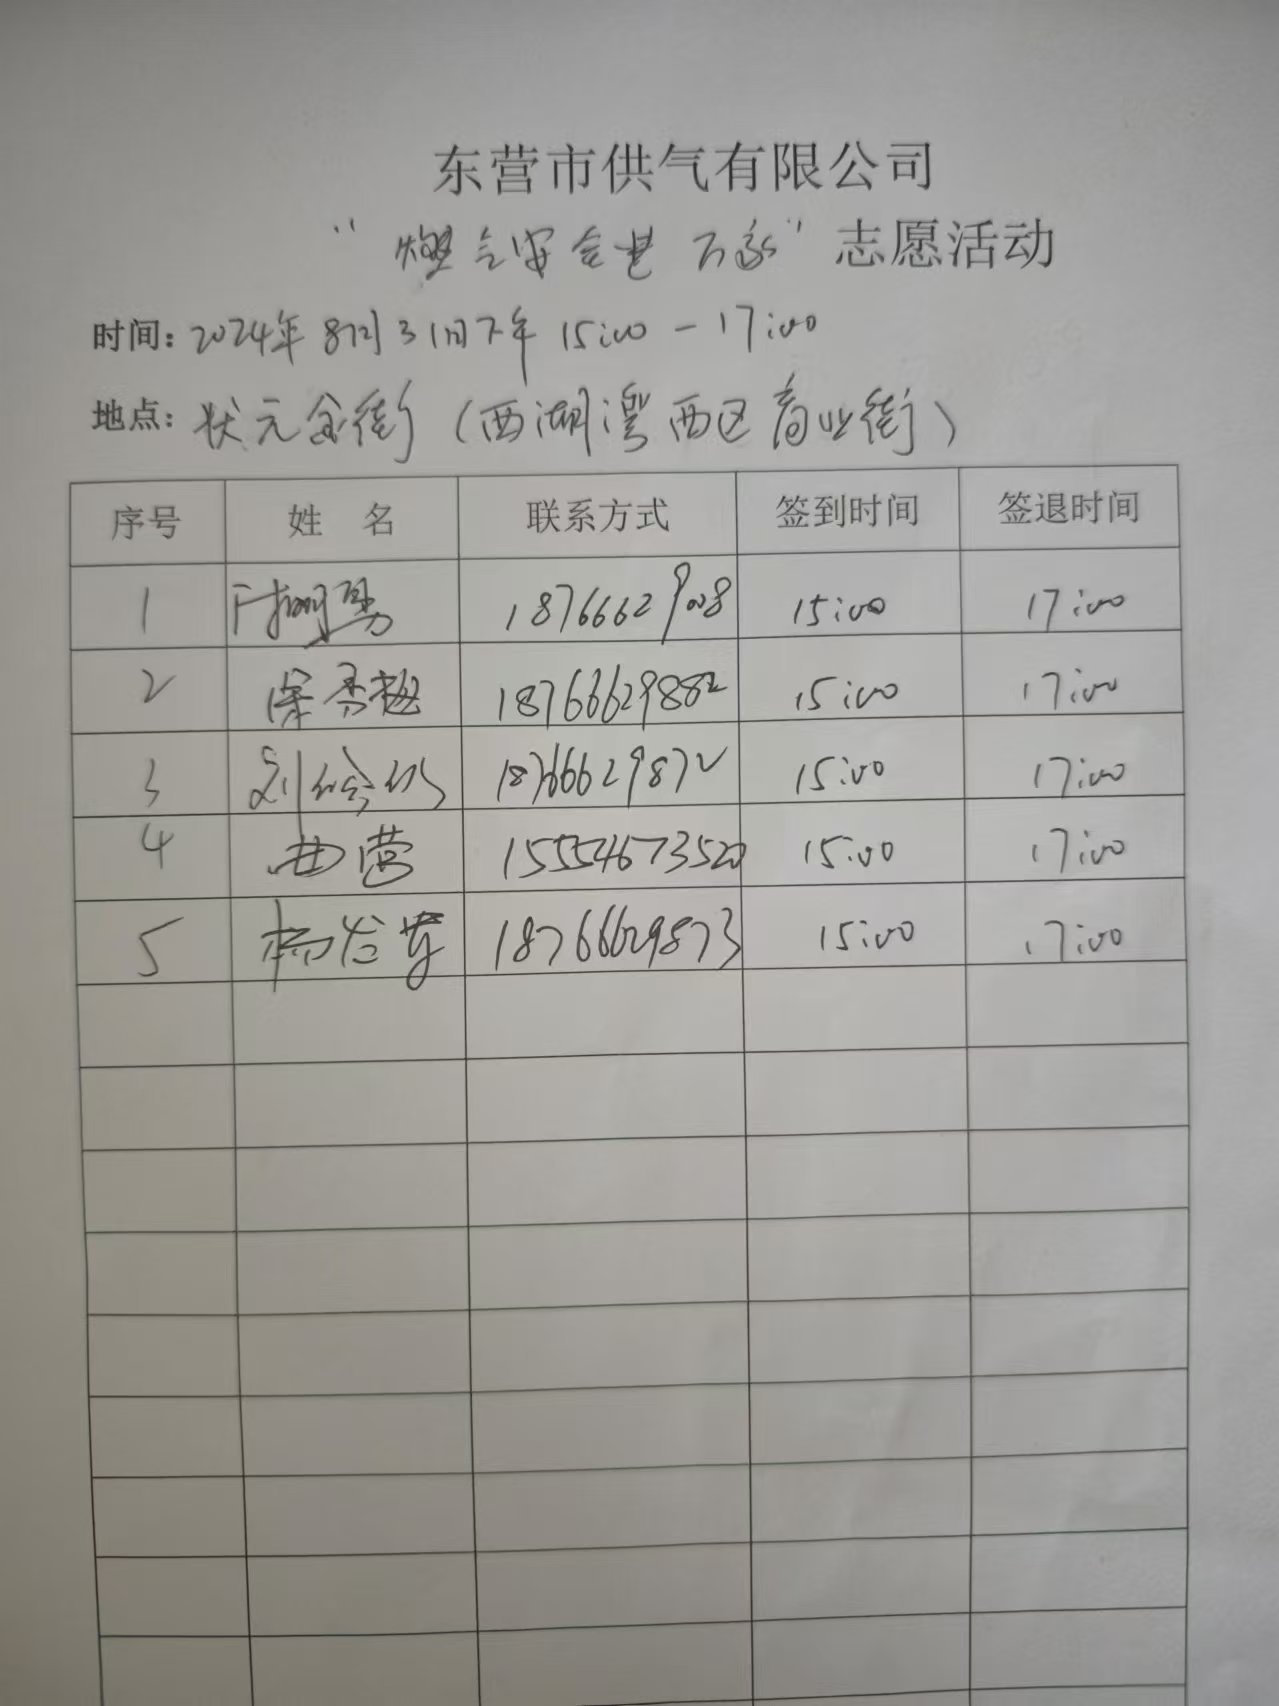 东营市供气有限公司
“燃气安全进万家”志愿活动
时间: 2024年8月31日下午 15:00-17:00
地点: 状元金街(西湖湾西区商业街)
序号 姓 名 联系方式 签到时间 签退时间
1 18766629008 15:00 17:00
2 18766629882 15:00 17:00
3 刘 18766629872 15:00 17:00
4 曲营 15554673520 15:00 17:00
5 杨 18766629873 15:00 17:00